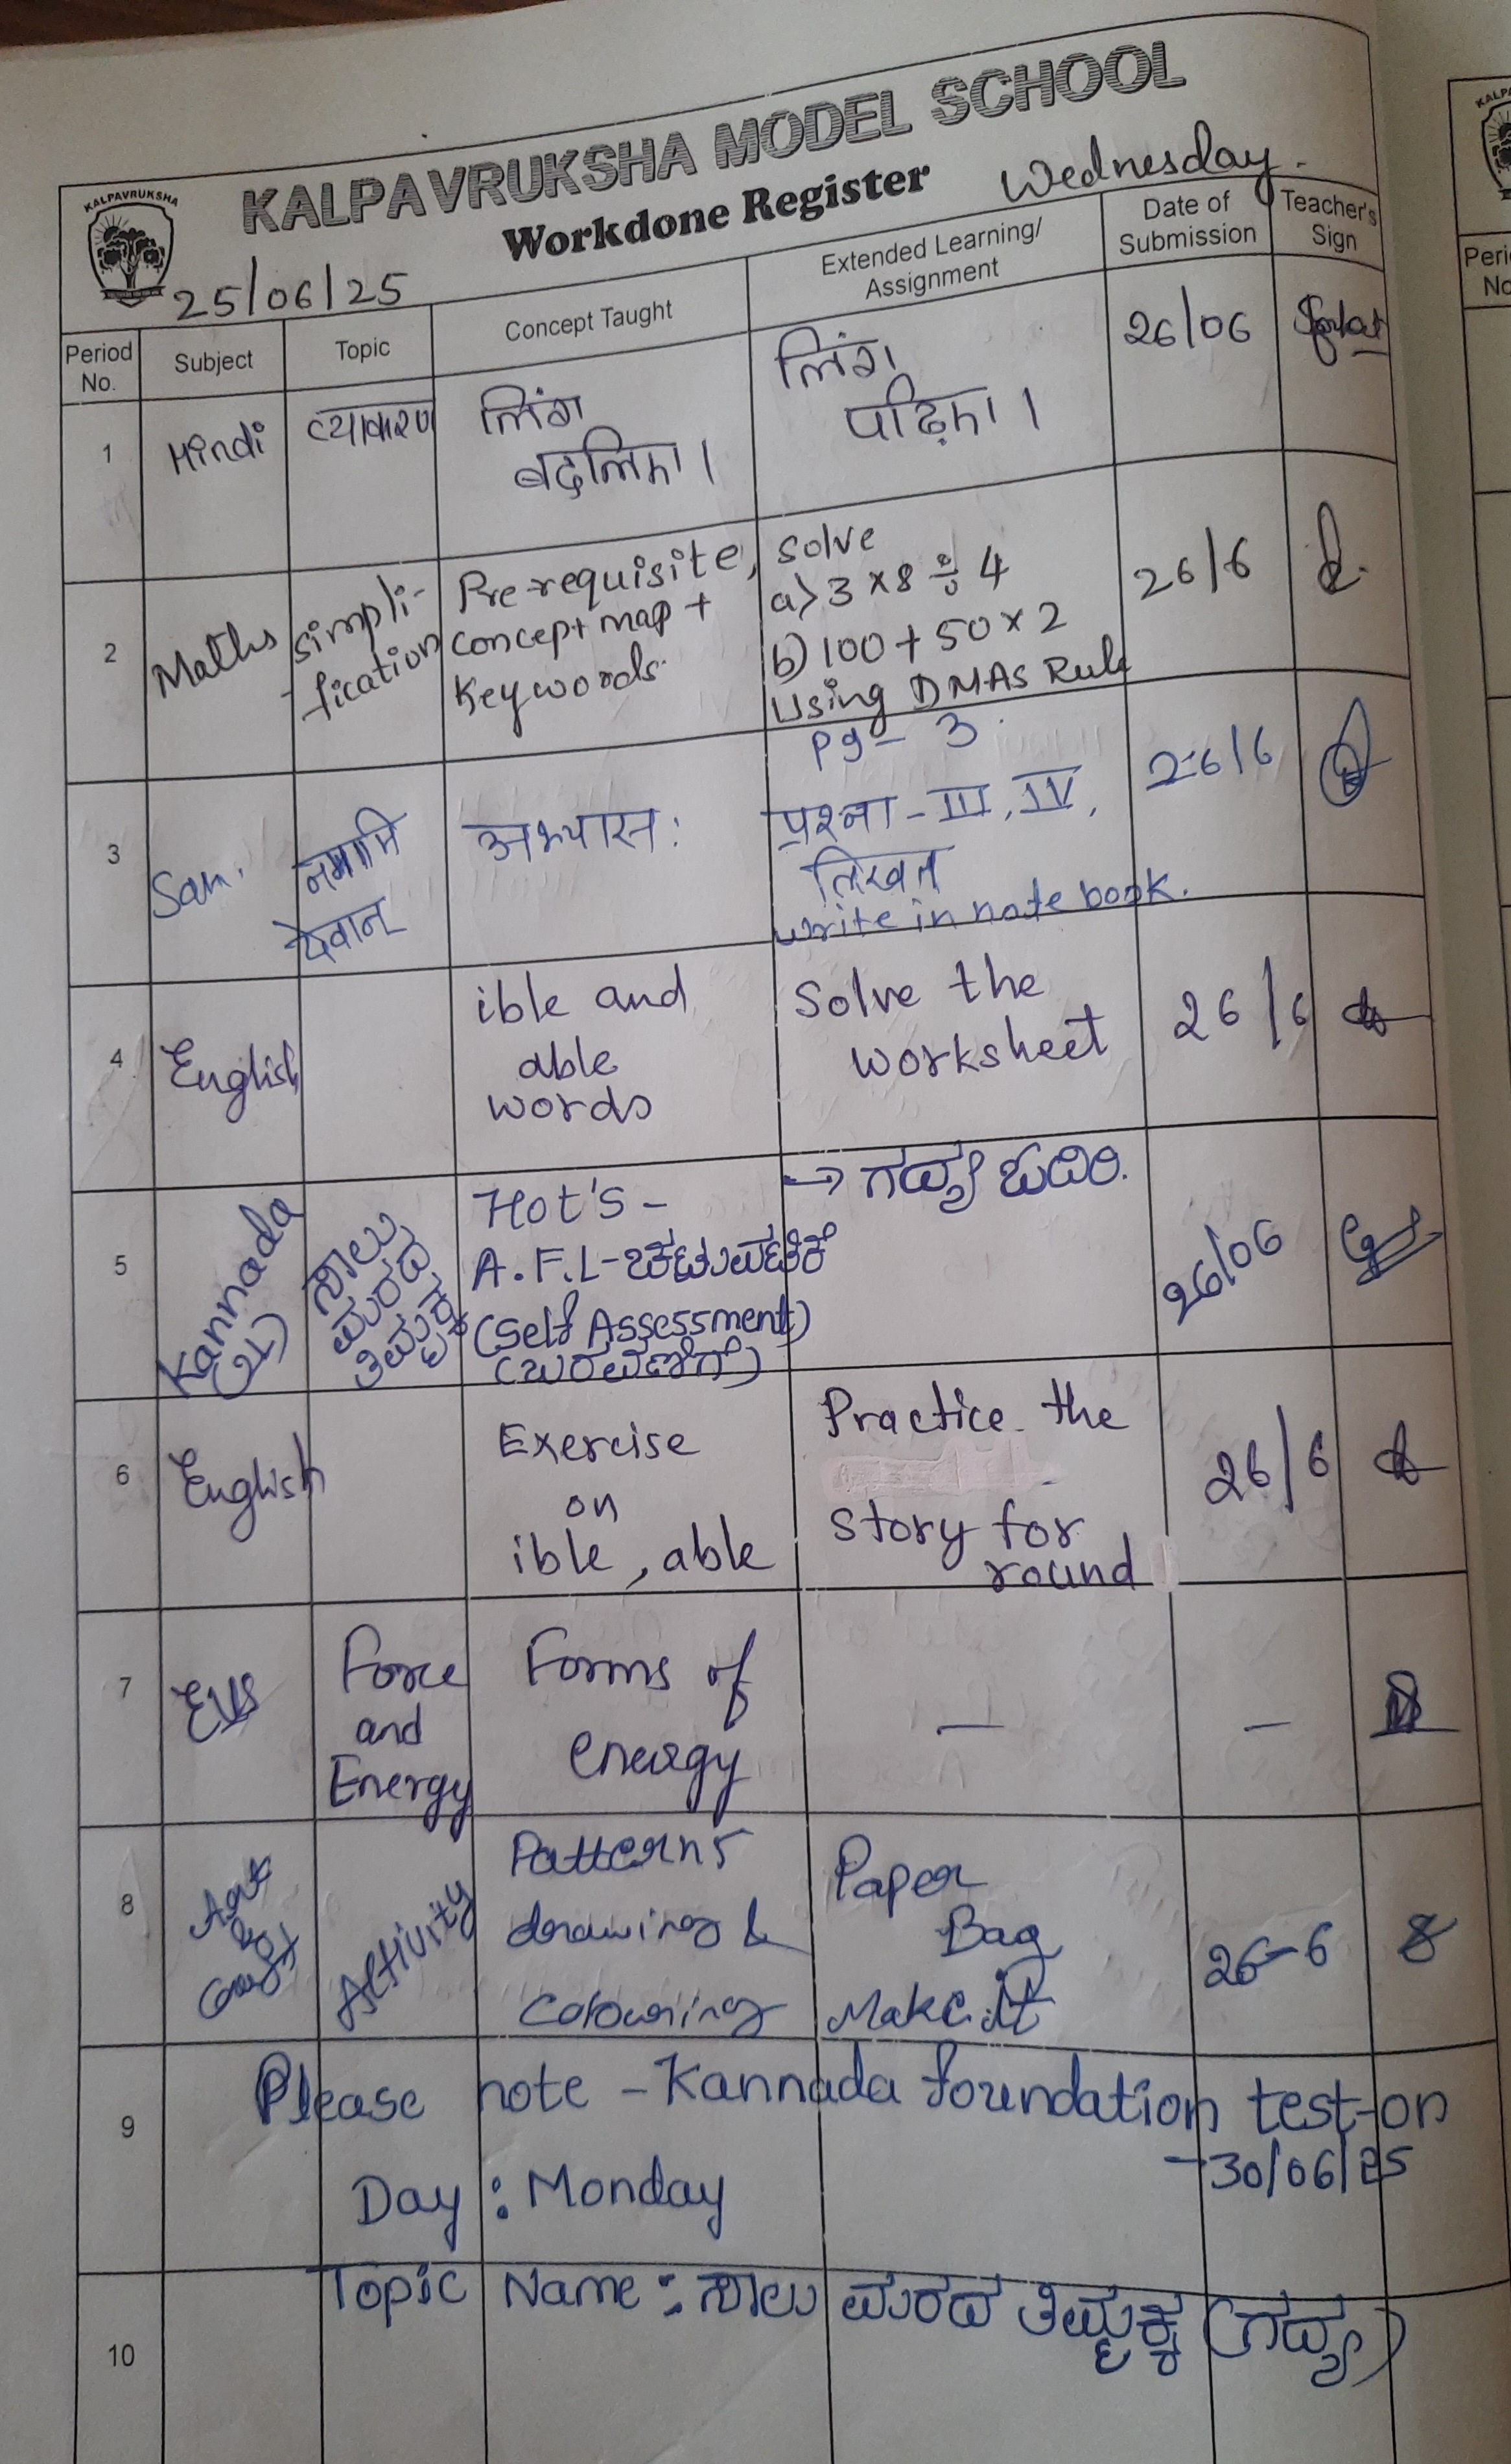 KALPAVRUKSHA
KALPAVRUKSHA MODEL SCHOOL
Workdone Register
Wednesday.
25/06/25
Period No.
Subject
Topic
Concept Taught
Extended Learning/
Assignment
Date of
Submission
Teacher's
Sign
1
Hindi
व्याकरण
लिंग
बदलिए।
लिंग
पढ़िए।
26/06
2
Maths
simpli-
-fication
Pre-requisite,
concept map +
Keywords.
solve
a) 3 × 8 ÷ 4
b) 100 + 50 × 2
Using DMAS Rule
26/6
3
San.
नमामि
देवान्
अभ्यास:
Pg - 3
प्रश्ना - III, IV,
लिखत
write in note book.
26/6
4
English
ible and
able
words
Solve the
worksheet
26/6
5
Kannada
(2L)
ಸಾಲು
ಮರದ
ತಿಮ್ಮಕ್ಕ
Hot's -
A.F.L - ಚಟುವಟಿಕೆ
(Self Assessment)
(ಬರವಣಿಗೆ)
→ ಗದ್ಯ ಓದಿರಿ.
26/06
6
English
Exercise
on
ible, able
Practice the
story for
round
26/6
7
EVS
Force
and
Energy
Forms of
energy
—
—
8
Art
&
Craft
Activity
Patterns
drawing &
Colouring
Paper
Bag
Make it
26-6
9
Please note - Kannada foundation test-on
-30/06/25
Day : Monday
Topic Name : ಸಾಲು ಮರದ ತಿಮ್ಮಕ್ಕ (ಗದ್ಯ)
10
KALP
Peri
No